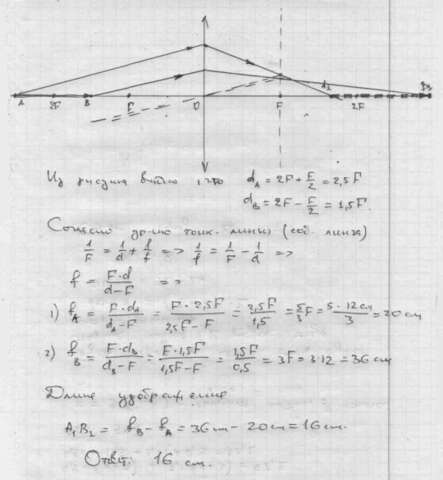 A 2F B F O F d₁ 2F B₁
Из рисунка видно, что d_A = 2F + F/2 = 2,5F
d_B = 2F - F/2 = 1,5F.
Согласно ур-ию тонк. линзы (соб. линза)
1/F = 1/d + 1/f => 1/f = 1/F - 1/d =>
f = F·d/(d-F) =>
1) f_A = F·d_A/(d_A-F) = F·2,5F/(2,5F-F) = 2,5F/1,5 = 5/3F = 5·12см/3 = 20 см
2) f_B = F·d_B/(d_B-F) = F·1,5F/(1,5F-F) = 1,5F/0,5 = 3F = 3·12 = 36 см
Длина изображения
A₁B₁ = f_B - f_A = 36 см - 20 см = 16 см.
Ответ: 16 см.